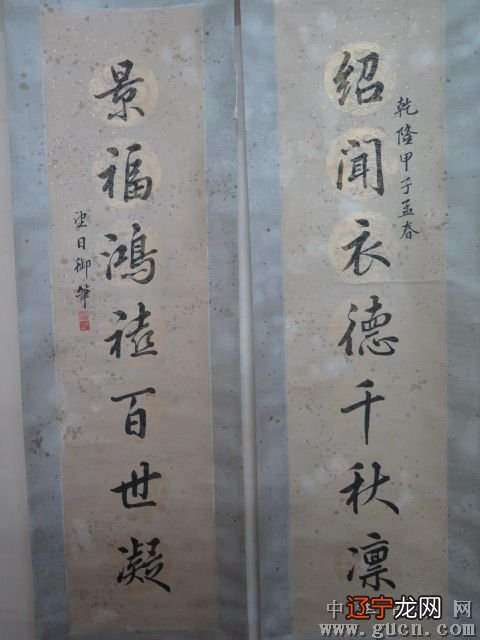 乾隆甲子孟春
绍闻衣德千秋凛
景福鸿禧百世凝
御笔
辽宁龙网
www.gucn.com